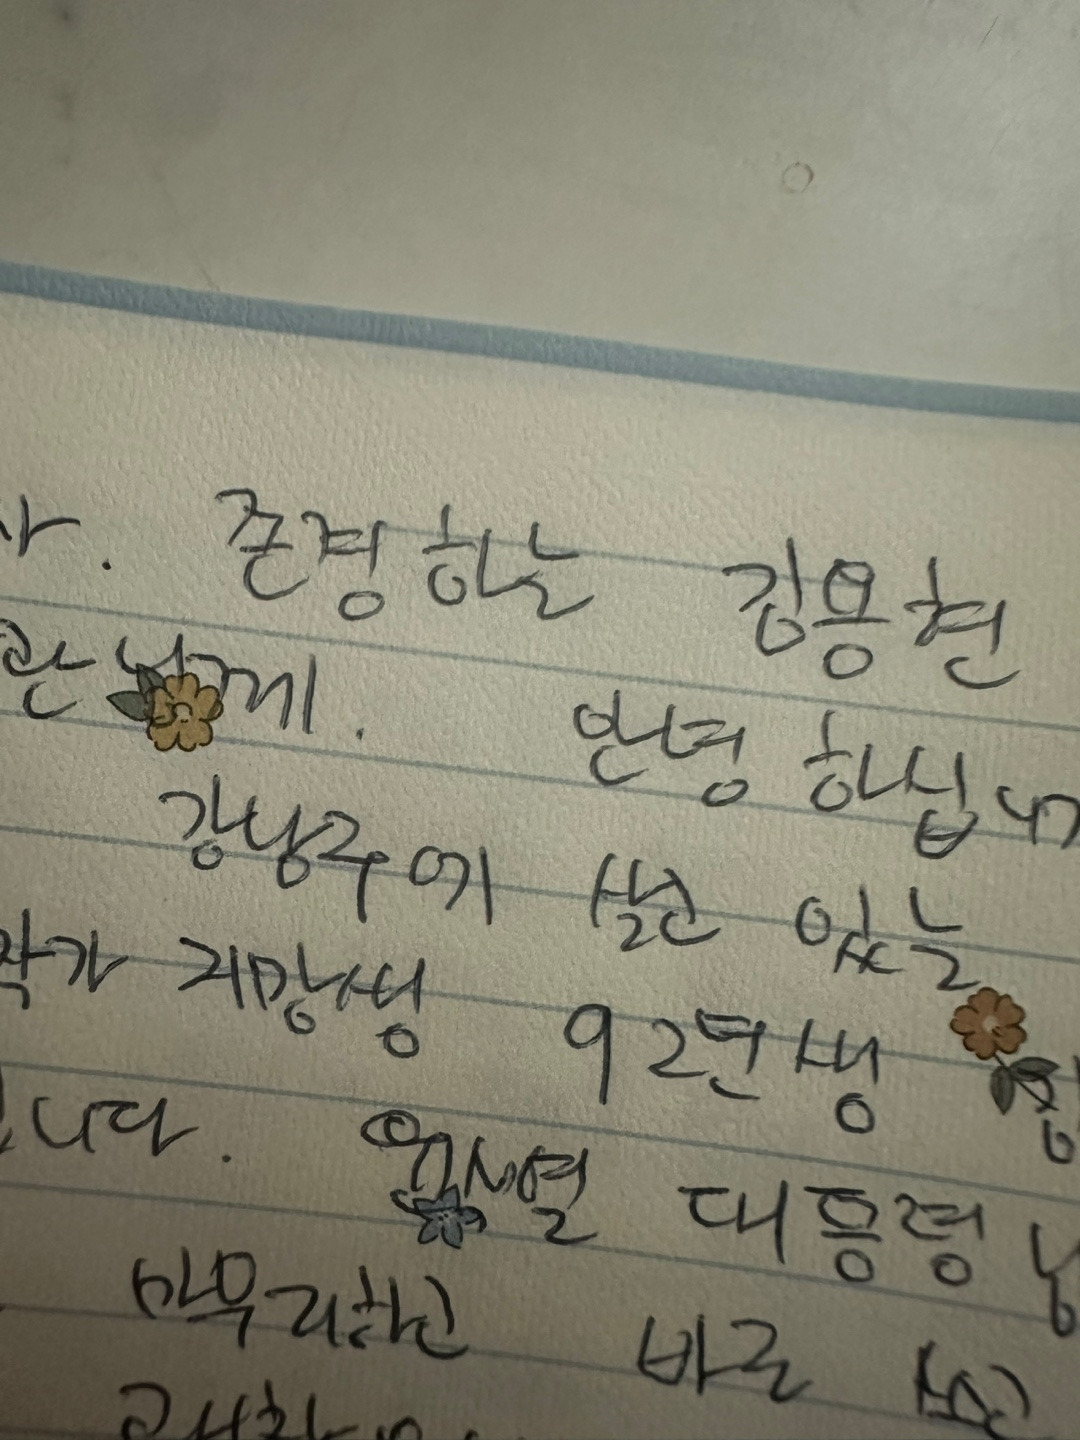 존경하는 김용현
께. 안녕하십니
강남구에 살고 있는
작가 지망생 92년생
니다. 윤석열 대통령님
마무리하고 바로